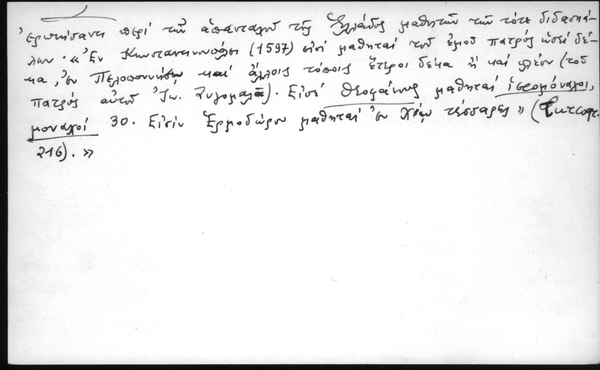 Ἐρωτήσαντι περὶ τῶν ἁπανταχοῦ τῆς Ἑλλάδος μαθητῶν τῶν τότε διδασκά-
λων· «Ἐν Κωνσταντινουπόλει (1597) εἰσὶ μαθηταὶ τοῦ ἐμοῦ πατρὸς ὡσεὶ δέ-
κα, ἐν Πελοποννήσῳ καὶ ἄλλοις τόποις ἕτεροι δέκα ἢ καὶ πλέον (τοῦ
πατρὸς αὐτοῦ Ἰω. Ζυγομαλᾶ). Εἰσὶ Θεοφάνους μαθηταὶ ἱερομόναχοι,
μοναχοὶ 30. Εἰσὶν Ἑρμοδώρου μαθηταὶ ἐν Χίῳ τέσσαρες» (
216). »